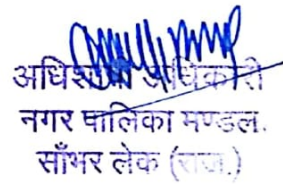 अधिशाषी अधिकारी
नगर पालिका मण्डल.
साँभर लेक (राज.)